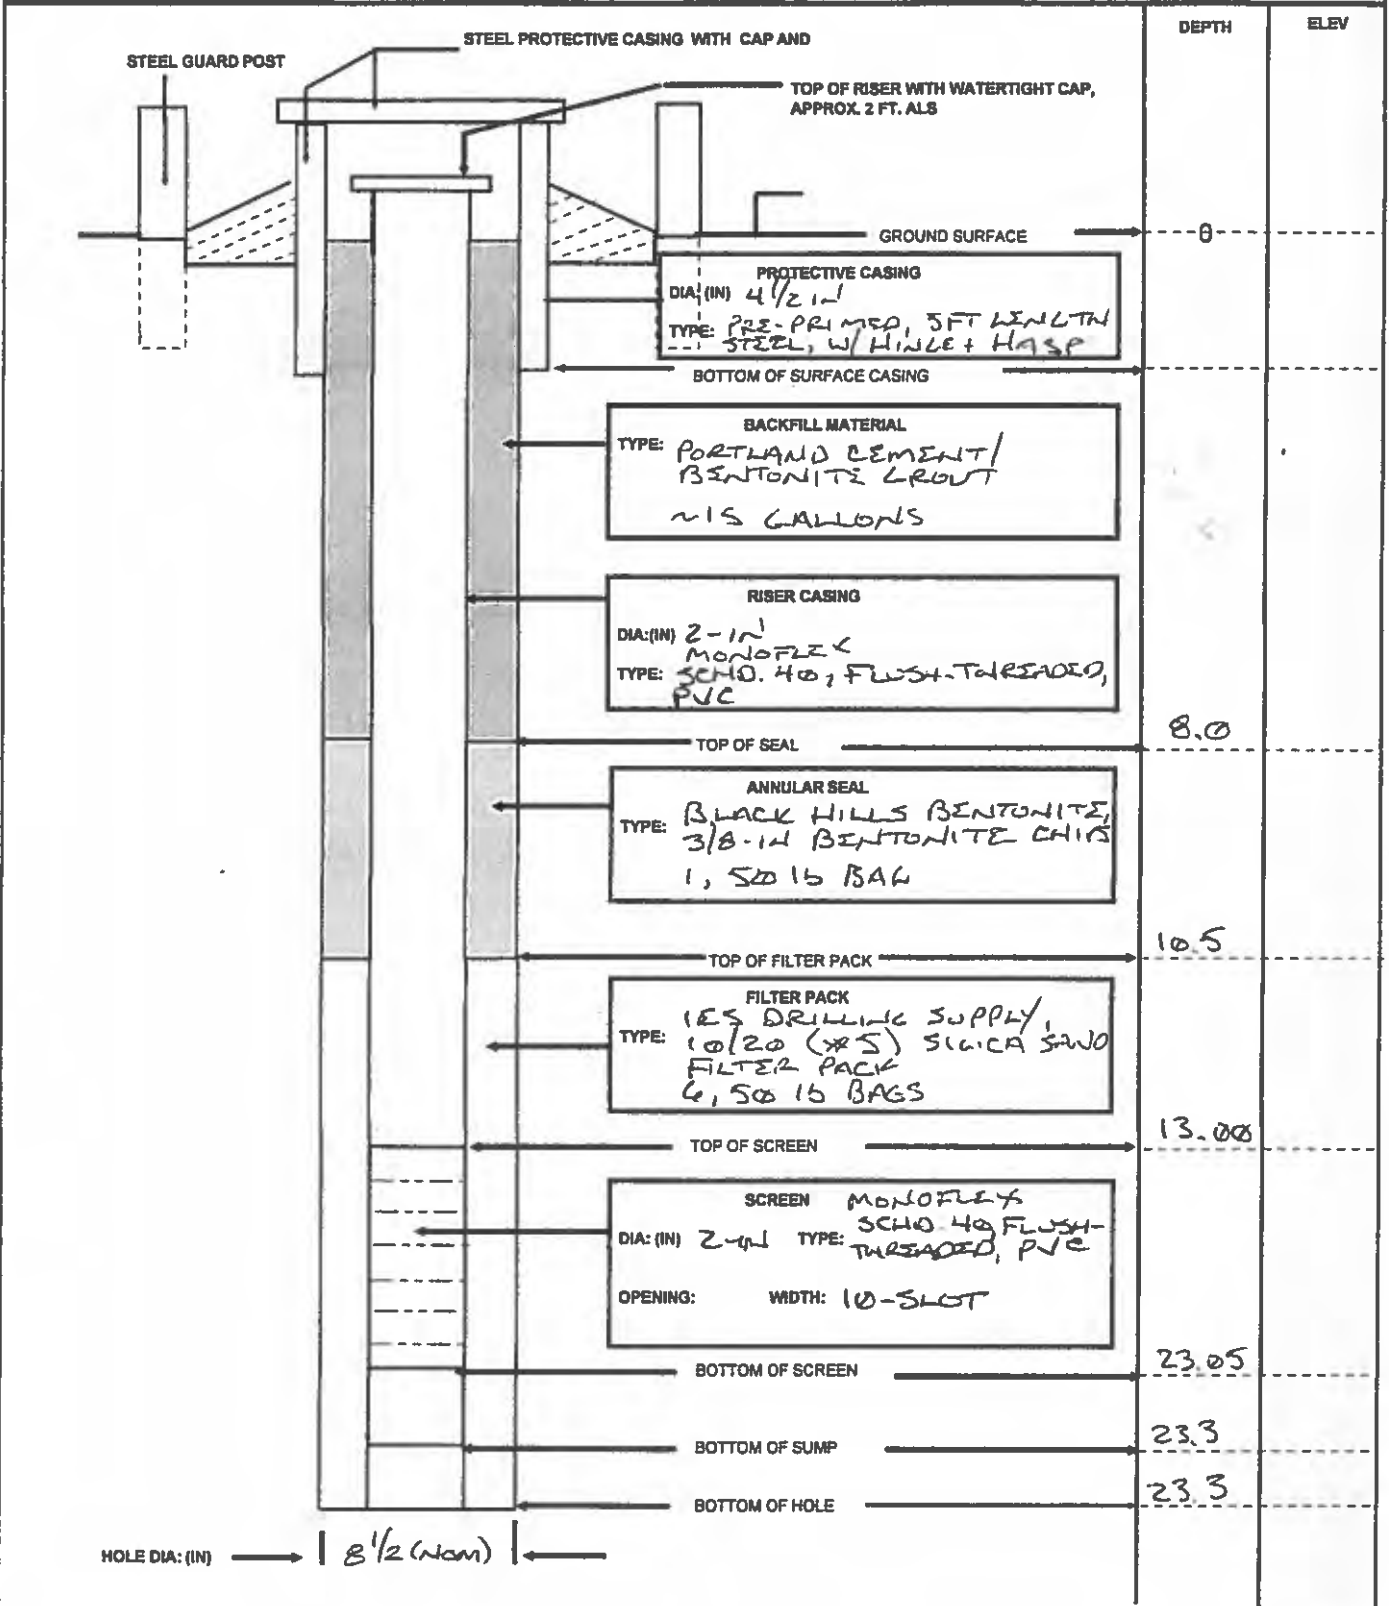 DEPTH
ELEV
STEEL PROTECTIVE CASING WITH CAP AND
STEEL GUARD POST
TOP OF RISER WITH WATERTIGHT CAP,
APPROX. 2 FT. ALS
GROUND SURFACE
0
PROTECTIVE CASING
DIA: (IN) 4 1/2 IN
TYPE: PRE-PRIMED, 5FT LENGTH
STEEL, W/ HINGE + HASP
BOTTOM OF SURFACE CASING
BACKFILL MATERIAL
TYPE: PORTLAND CEMENT/
BENTONITE GROUT
~15 GALLONS
RISER CASING
DIA:(IN) 2-IN
MONOFLEX
TYPE: SCHD. 40, FLUSH-THREADED,
PVC
TOP OF SEAL
8.0
ANNULAR SEAL
TYPE: BLACK HILLS BENTONITE,
3/8-IN BENTONITE CHIPS
1, 50 lb BAG
TOP OF FILTER PACK
10.5
FILTER PACK
TYPE: IES DRILLING SUPPLY,
10/20 (#5) SILICA SAND
FILTER PACK
6, 50 lb BAGS
TOP OF SCREEN
13.00
SCREEN MONOFLEX
DIA: (IN) 2-IN TYPE: SCHD. 40, FLUSH-
THREADED, PVC
OPENING: WIDTH: 10-SLOT
BOTTOM OF SCREEN
23.05
BOTTOM OF SUMP
23.3
BOTTOM OF HOLE
23.3
HOLE DIA: (IN) 8 1/2 (NOM)